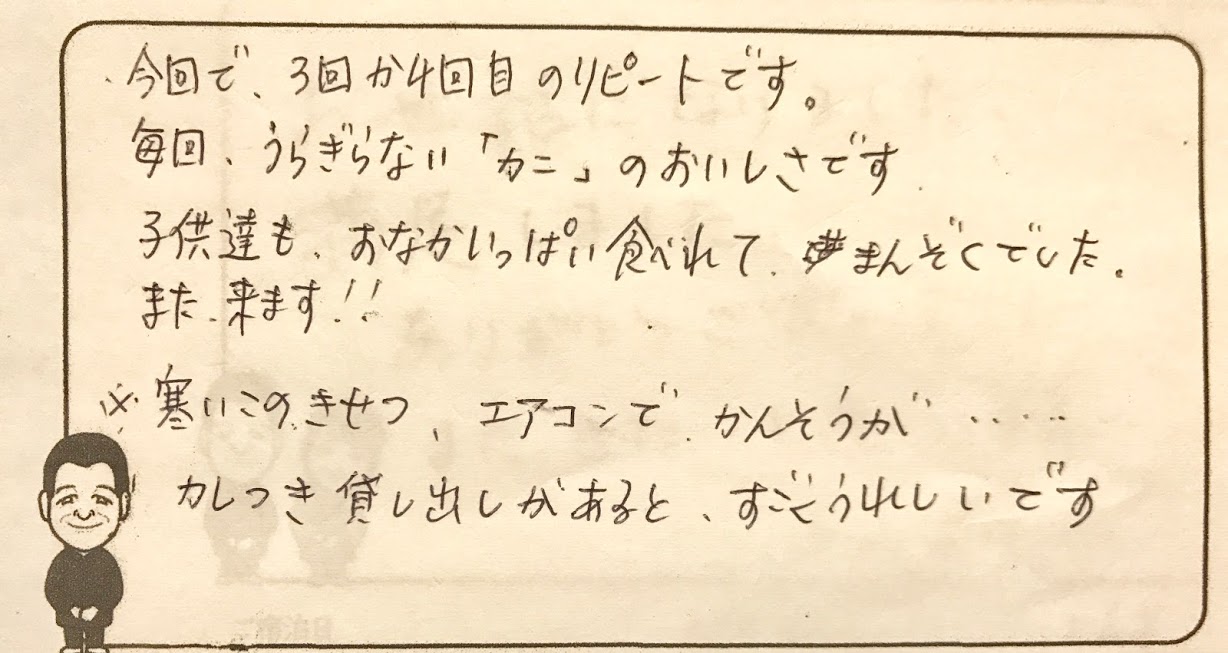 今回で、3回か4回目のリピートです。
毎回、うらぎらない「カニ」のおいしさです
子供達も、おなかいっぱい食べれて、まんぞくでした。
また、来ます!!
※寒いこのきせつ、エアコンで、かんそうが‥‥‥
カしつき貸し出しがあると、すごくうれしいです